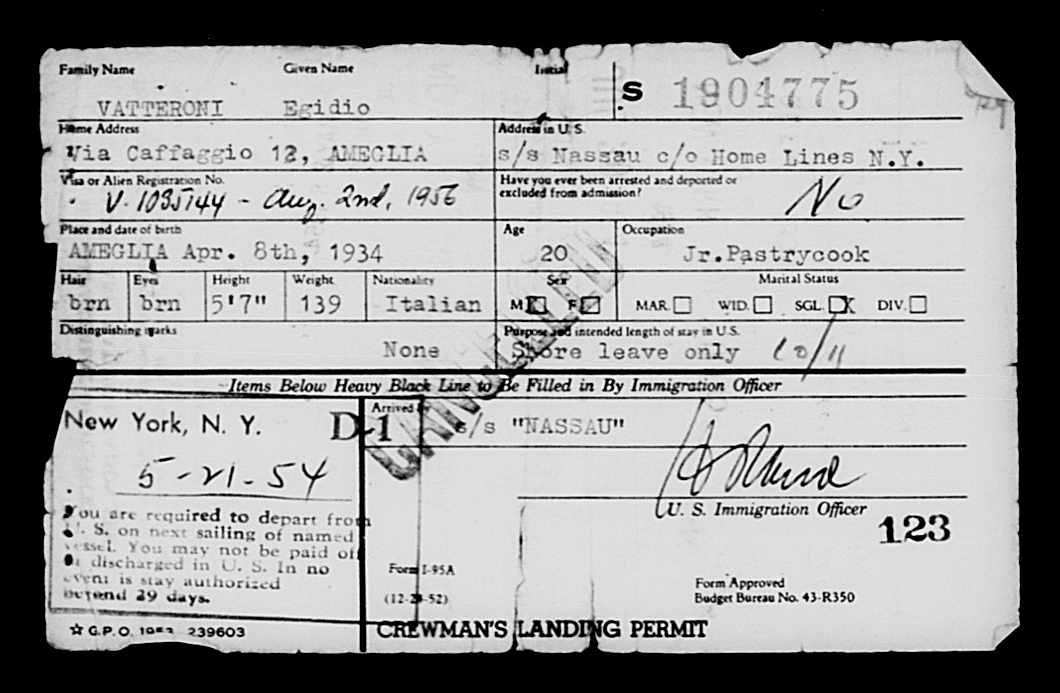 Family Name Given Name Initial
VATTERONI Egidio S 1904775
Home Address Address in U. S.
Via Caffaggio 12, AMEGLIA s/s Nassau c/o Home Lines N.Y.
Visa or Alien Registration No. Have you ever been arrested and deported or
excluded from admission?
V. 1035144 - Aug. 2nd, 1956 No
Place and date of birth Age Occupation
AMEGLIA Apr. 8th, 1934 20 Jr.Pastrycook
Hair Eyes Height Weight Nationality Sex Marital Status
brn brn 5'7" 139 Italian M X F MAR. WID. SGL. X DIV.
Distinguishing marks Purpose and intended length of stay in U.S.
None Shore leave only
CANCELLED
Items Below Heavy Black Line to Be Filled in By Immigration Officer
New York, N. Y. D-1 Arrived by
s/s "NASSAU"
5-21-54
U. S. Immigration Officer
123
You are required to depart from
U. S. on next sailing of named
vessel. You may not be paid off
or discharged in U. S. In no
event is stay authorized
beyond 29 days.
Form I-95A
(12-2 -52)
Form Approved
Budget Bureau No. 43-R350
☆ G.P.O. 239603
CREWMAN'S LANDING PERMIT